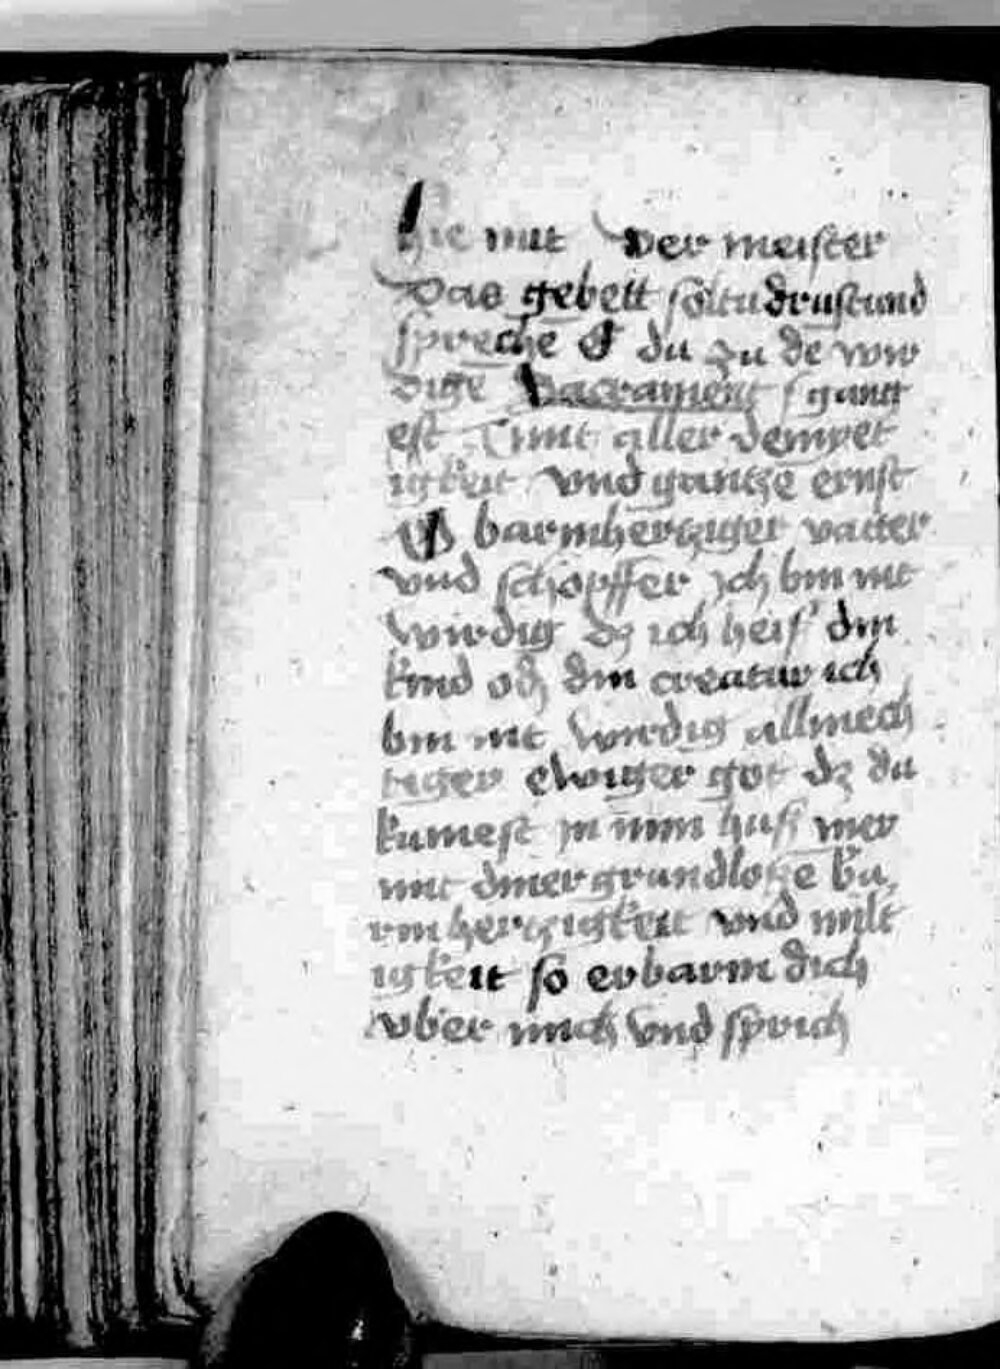 hie mit der meister
Das gebett soltu drüstund
spreche E du zu de wir
dige Sacrament gang
est mit aller demuet
igkeit vnd gantze ernst
O barmhertziger vatter
vnd schöpffer ich bin nit
wirdig dz ich heis din
kind od din creatur ich
bin nit wirdig allmech
tiger ewiger got dz du
kumest in min hus mer
mit diner grundlose ba
rmhertzigkeit vnd milt
igkeit so erbarm dich
vber mich vnd sprich